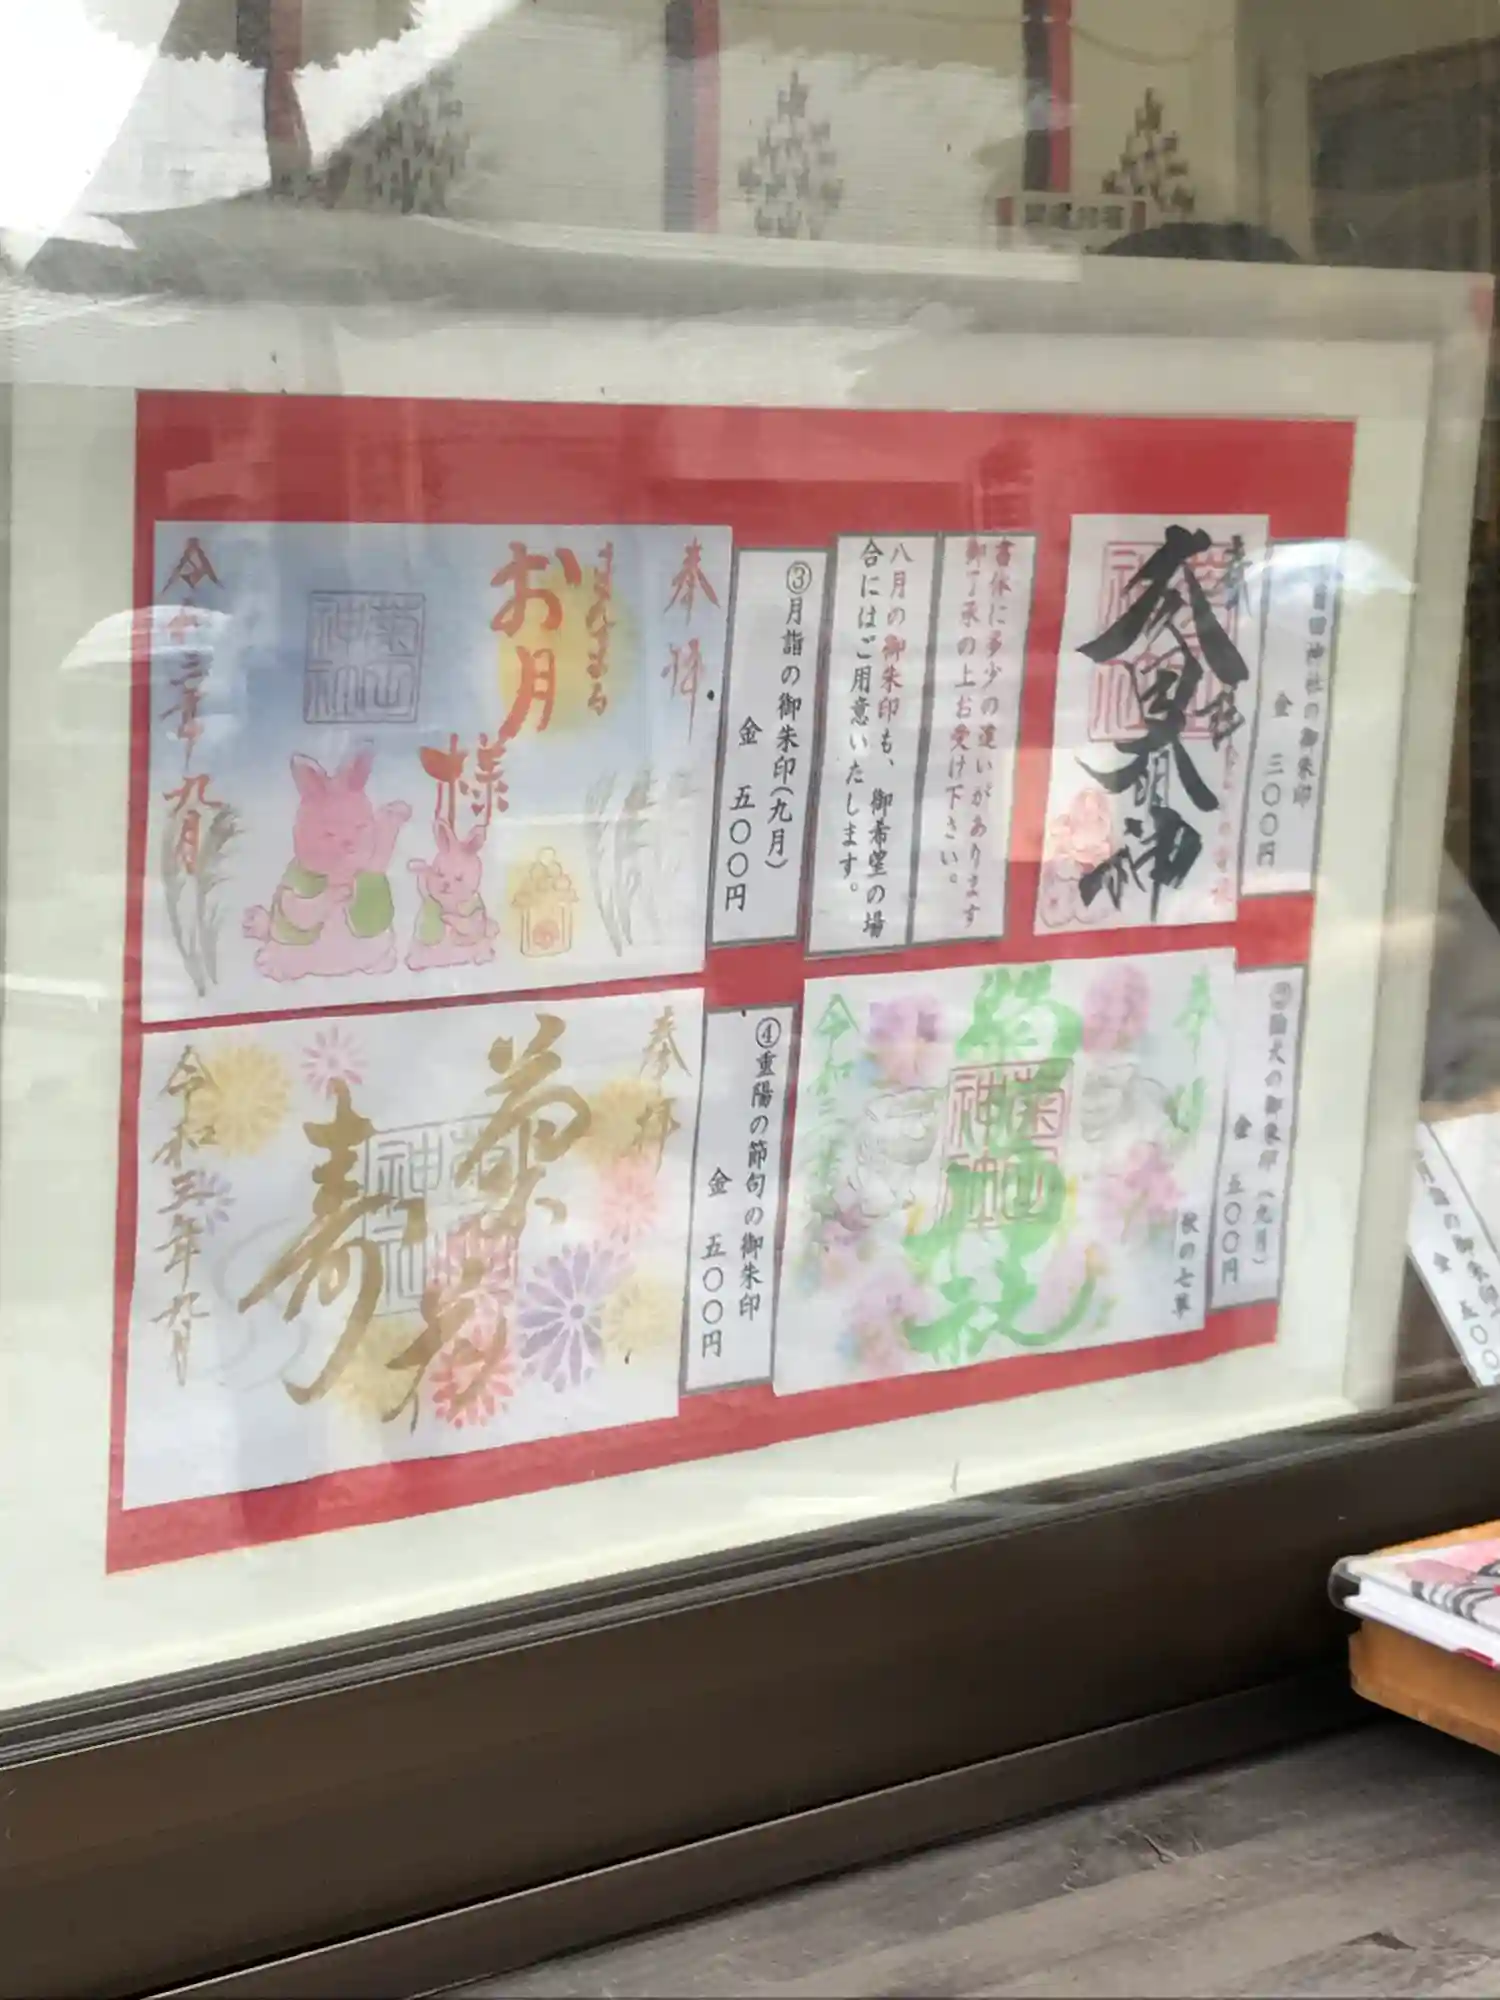 神社の御朱印
金 三〇〇円
書体に多少の違いがあります
御了承の上お受け下さい。
八月の御朱印も、御希望の場
合にはご用意いたします。
③月詣の御朱印(九月)
金 五〇〇円
奉拝
まんまる
お月様
令和三年九月
犬の御朱印(九月)
金 五〇〇円
秋の七草
奉拝
神社
令和三年
④重陽の節句の御朱印
金 五〇〇円
奉拝
菊花
寿
令和三年九月
月詣の御朱印
金 五〇〇